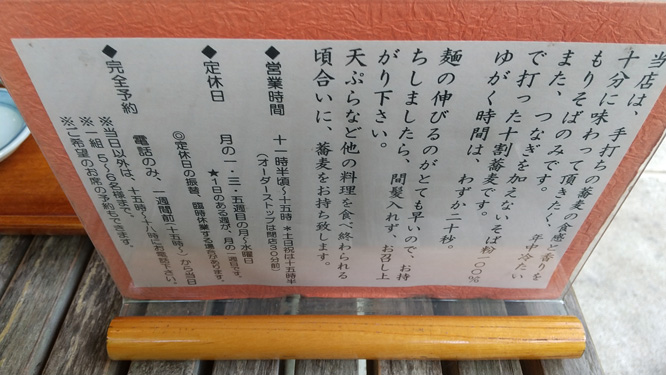 当店は、手打ちの蕎麦の食感と香りを
十分に味わって頂きたく、年中冷たい
もりそばのみです。
また、つなぎを加えないそば粉一〇〇％
で打った十割蕎麦です。
ゆがく時間は、わずか二十秒。
麺の伸びるのがとても早いので、お持
ちしましたら、間髪入れず、お召し上
がり下さい。
天ぷらなど他の料理を食べ終わられる
頃合いに、蕎麦をお持ち致します。
◆営業時間 十一時半頃〜十五時 ＊土日祝は十五時半
（オーダーストップは閉店30分前）
◆定休日 月の一・三・五週目の月〜水曜日
★1日のある週が、月の一週目です。
◎定休日の振替、臨時休業する場合があります。
◆完全予約 電話のみ、一週間前（十五時〜）から当日
※当日以外は、十五時〜十八時にお電話下さい。
※一組、5〜6名様まで。
※ご希望のお席の予約もできます。